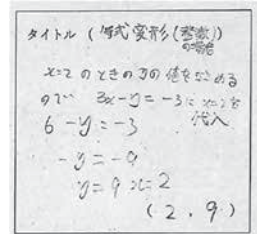 タイトル (等式変形(整数)の場合)
x=2 のときの y の値を求める
ので 3x-y=-3に x=2を
代入
6-y=-3
-y=-9
y=9 x=2
(2,9)